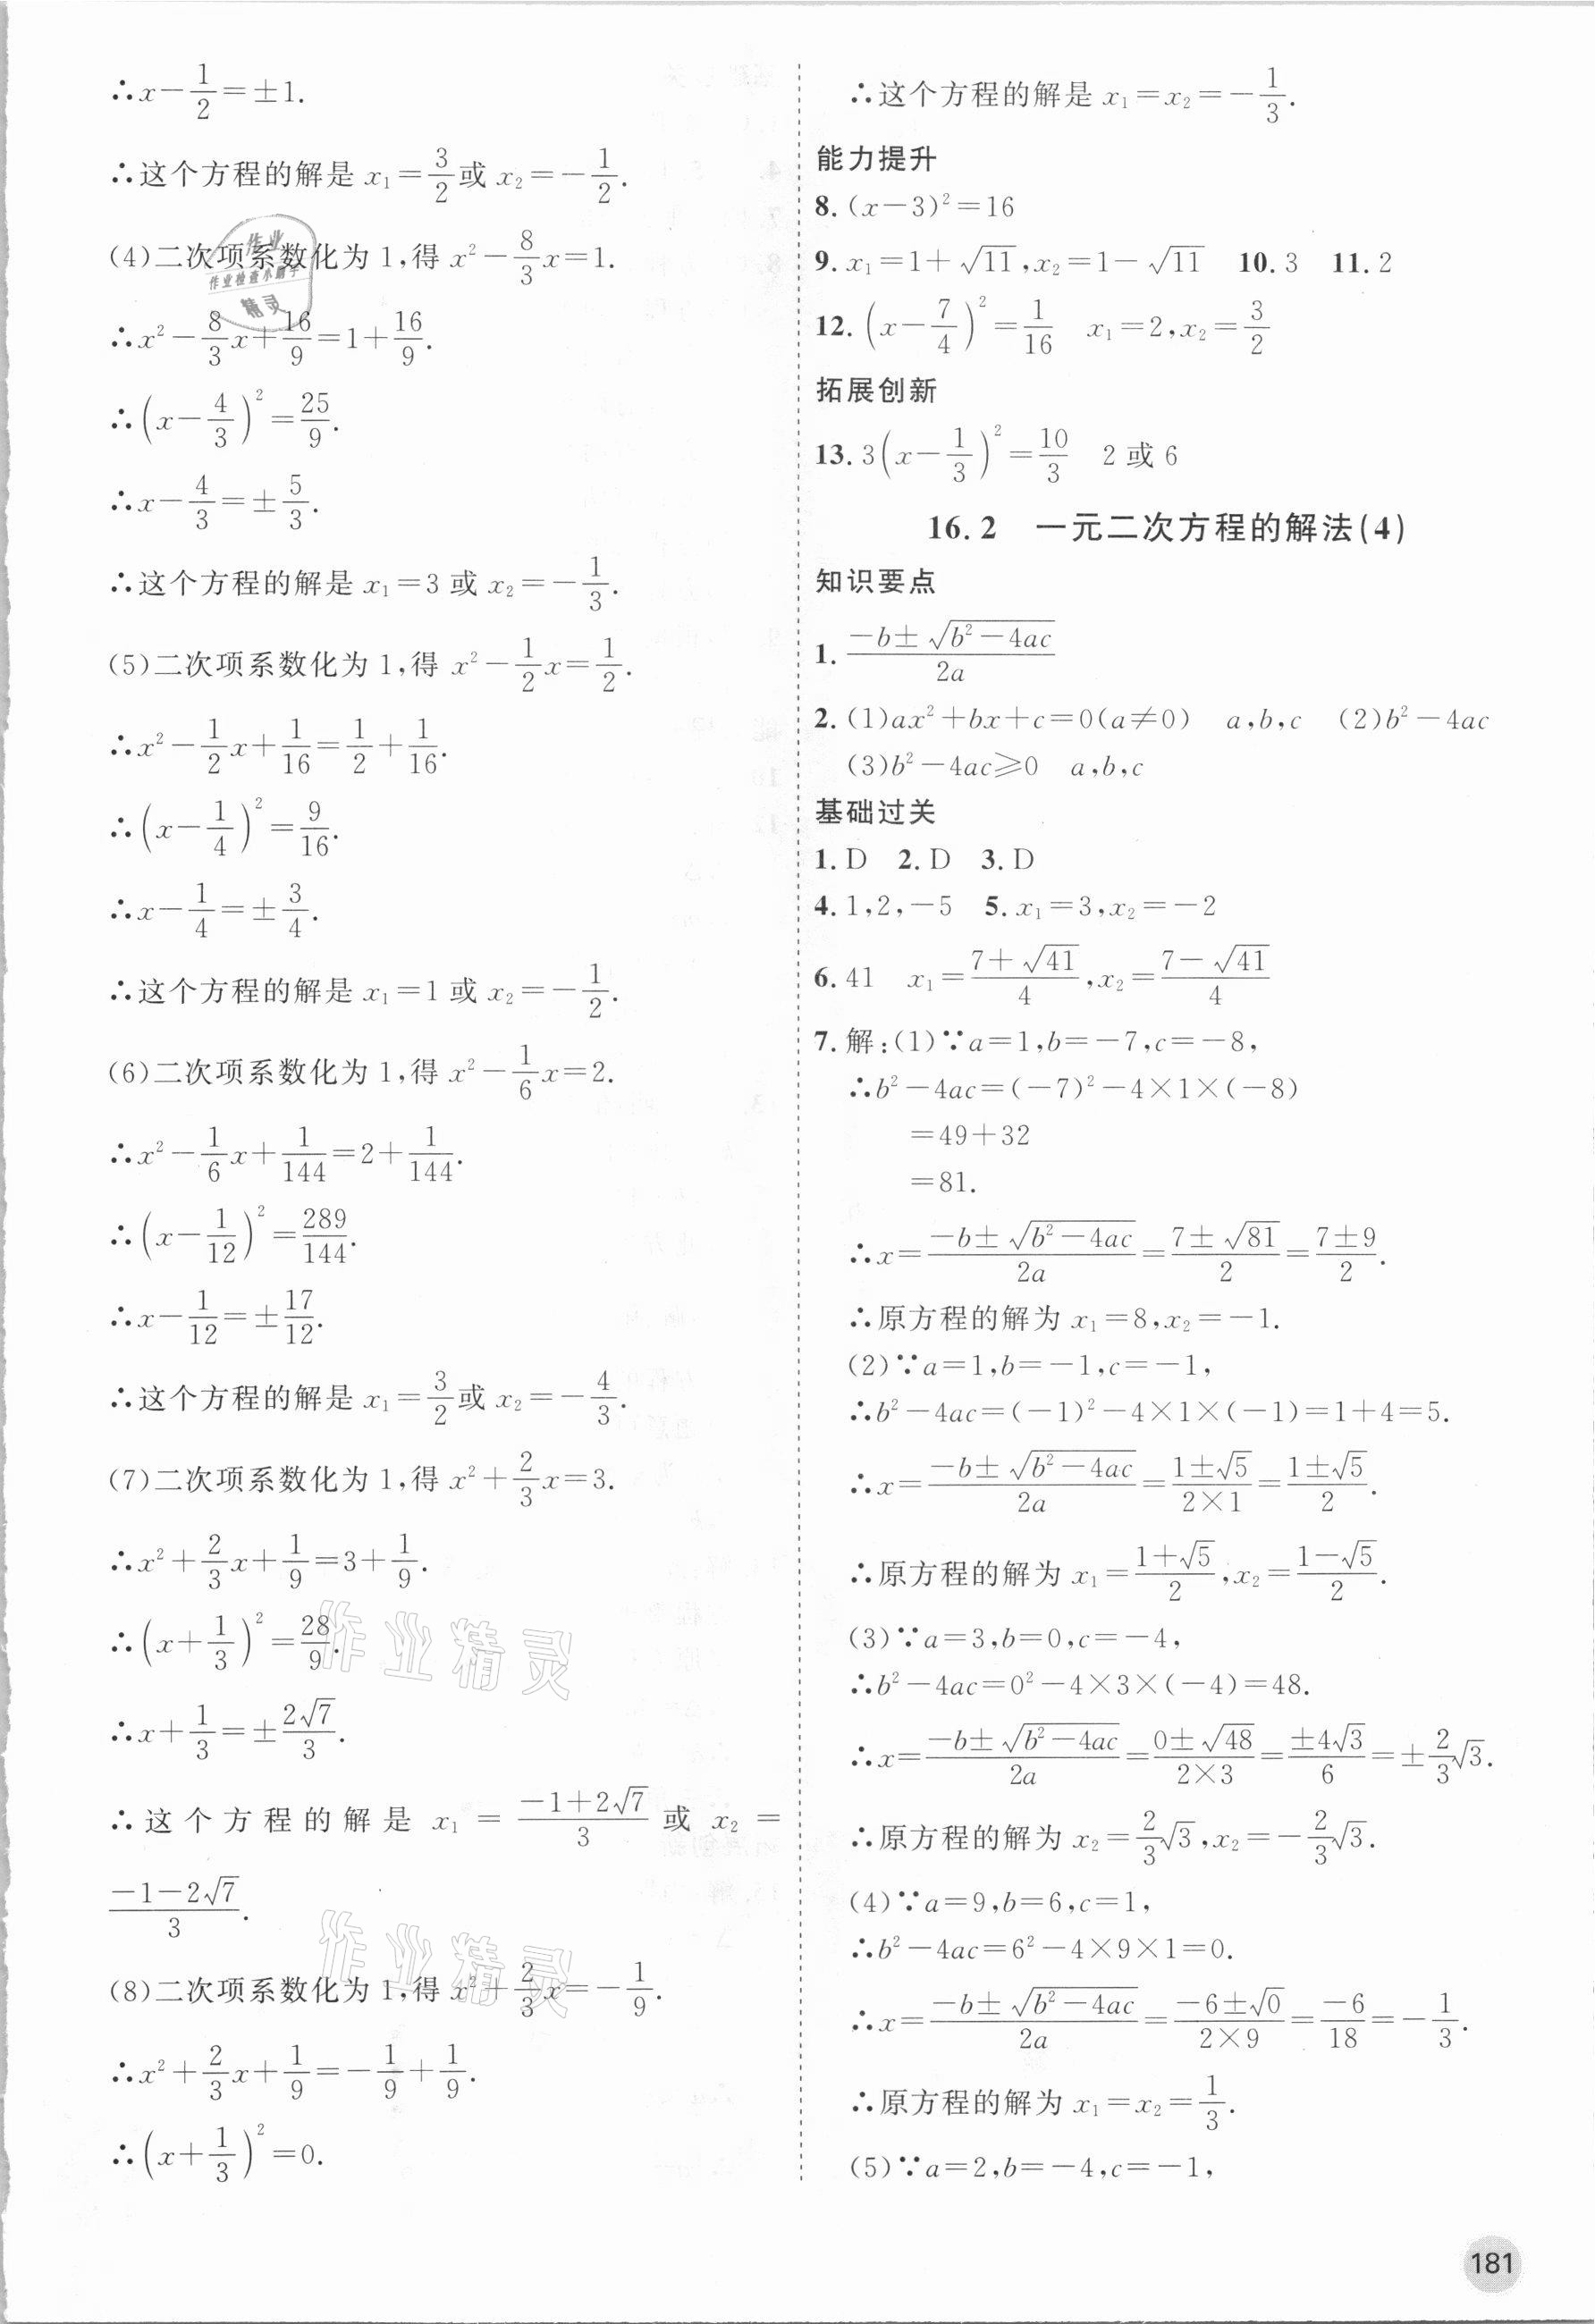 ∴x−1/2=±1.
∴这个方程的解是 x₁=3/2或 x₂=−1/2.
(4)二次项系数化为1,得 x²−8/3x=1.
∴x²−8/3x+16/9=1+16/9.
∴(x−4/3)²=25/9.
∴x−4/3=±5/3.
∴这个方程的解是 x₁=3 或 x₂=−1/3.
(5)二次项系数化为1,得 x²−1/2x=1/2.
∴x²−1/2x+1/16=1/2+1/16.
∴(x−1/4)²=9/16.
∴x−1/4=±3/4.
∴这个方程的解是 x₁=1 或 x₂=−1/2.
(6)二次项系数化为1,得 x²−1/6x=2.
∴x²−1/6x+1/144=2+1/144.
∴(x−1/12)²=289/144.
∴x−1/12=±17/12.
∴这个方程的解是 x₁=3/2或 x₂=−4/3.
(7)二次项系数化为1,得 x²+2/3x=3.
∴x²+2/3x+1/9=3+1/9.
∴(x+1/3)²=28/9.
∴x+1/3=±2√7/3.
∴这个方程的解是 x₁=(−1+2√7)/3 或 x₂=
(−1−2√7)/3.
(8)二次项系数化为1,得 x²+2/3x=−1/9.
∴x²+2/3x+1/9=−1/9+1/9.
∴(x+1/3)²=0.
∴这个方程的解是 x₁=x₂=−1/3.
能力提升
8.(x−3)²=16
9.x₁=1+√11,x₂=1−√11 10.3 11.2
12.(x−7/4)²=1/16 x₁=2,x₂=3/2
拓展创新
13.3(x−1/3)²=10/3 2或6
16.2 一元二次方程的解法(4)
知识要点
1.(−b±√(b²−4ac))/2a
2.(1)ax²+bx+c=0(a≠0) a,b,c (2)b²−4ac
(3)b²−4ac≥0 a,b,c
基础过关
1.D 2.D 3.D
4.1,2,−5 5.x₁=3,x₂=−2
6.41 x₁=(7+√41)/4,x₂=(7−√41)/4
7.解:(1)∵a=1,b=−7,c=−8,
∴b²−4ac=(−7)²−4×1×(−8)
=49+32
=81.
∴x=(−b±√(b²−4ac))/2a=(7±√81)/2=(7±9)/2.
∴原方程的解为 x₁=8,x₂=−1.
(2)∵a=1,b=−1,c=−1,
∴b²−4ac=(−1)²−4×1×(−1)=1+4=5.
∴x=(−b±√(b²−4ac))/2a=(1±√5)/(2×1)=(1±√5)/2.
∴原方程的解为 x₁=(1+√5)/2,x₂=(1−√5)/2.
(3)∵a=3,b=0,c=−4,
∴b²−4ac=0²−4×3×(−4)=48.
∴x=(−b±√(b²−4ac))/2a=(0±√48)/(2×3)=±4√3/6=±2/3√3.
∴原方程的解为 x₂=2/3√3,x₂=−2/3√3.
(4)∵a=9,b=6,c=1,
∴b²−4ac=6²−4×9×1=0.
∴x=(−b±√(b²−4ac))/2a=(−6±√0)/(2×9)=−6/18=−1/3.
∴原方程的解为 x₁=x₂=1/3.
(5)∵a=2,b=−4,c=−1,
181
作业
作业检查小助手
精灵
作业精灵
作业精灵